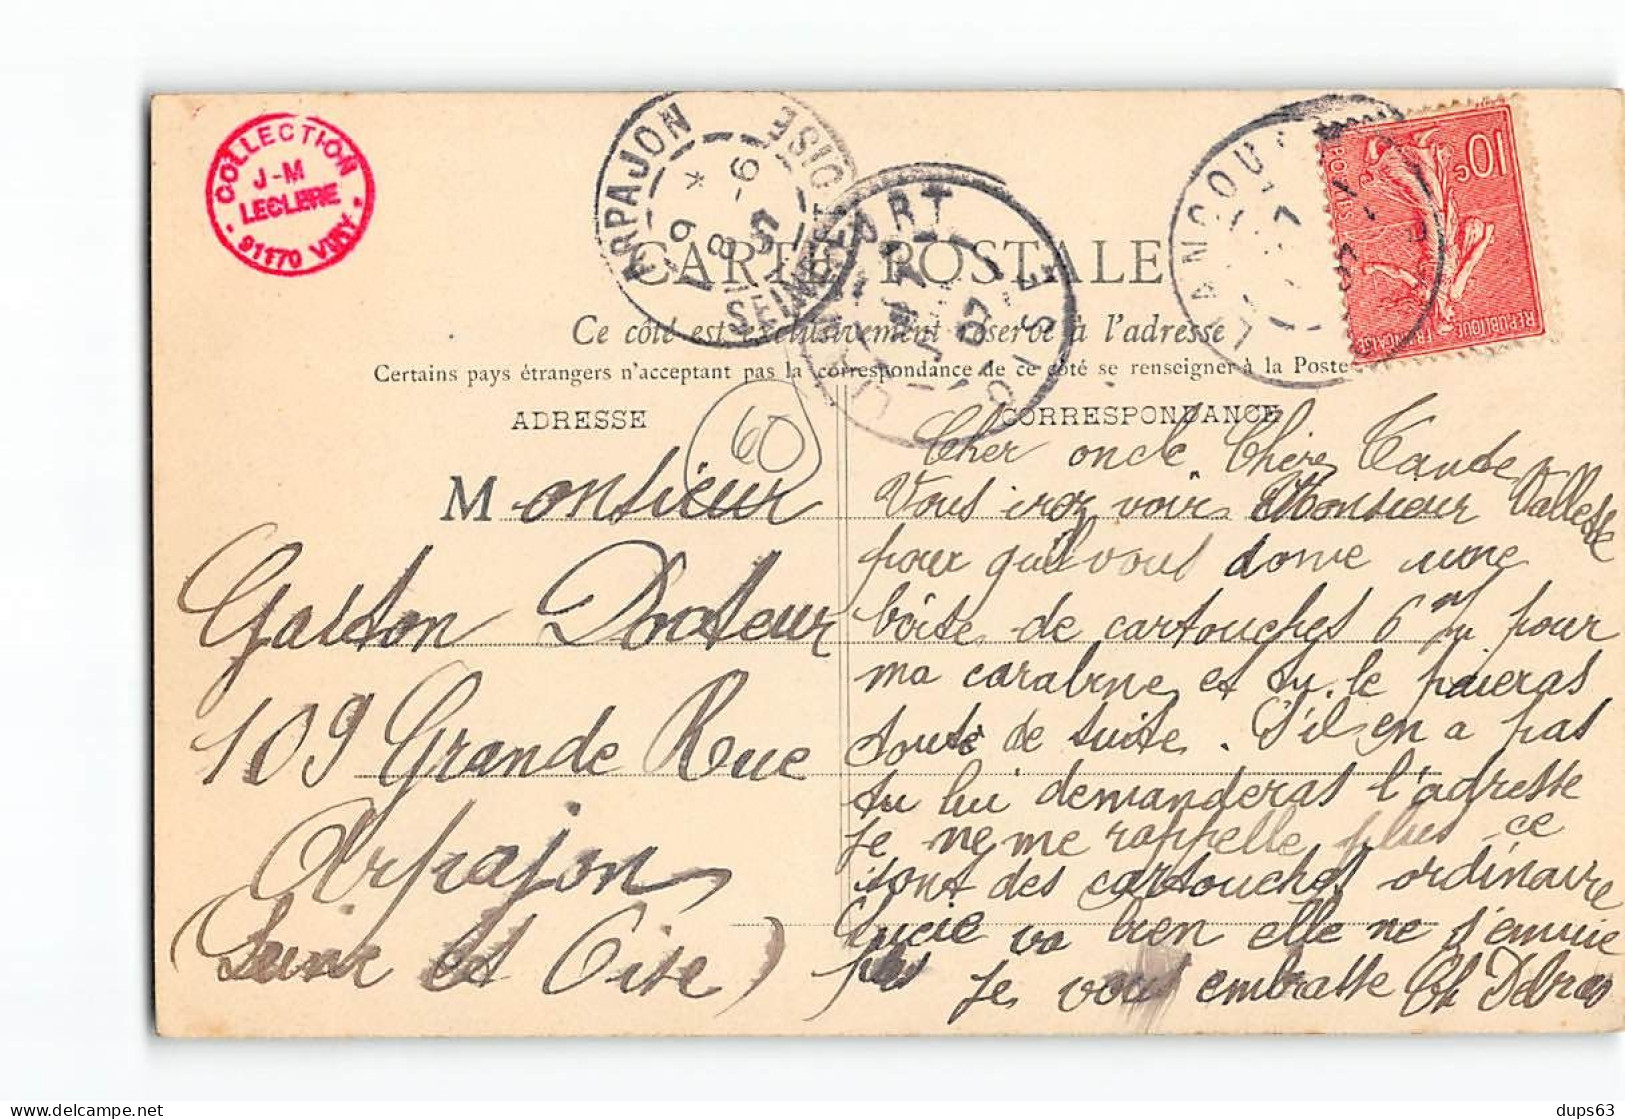 COLLECTION
J-M
LECLERE
91170 VIRY
ARPAJON
SEINE ET OISE
LIANCOURT
OISE
07
10c
POSTES
REPUBLIQUE FRANÇAISE
CARTE POSTALE
Ce côté est exclusivement réservé à l'adresse
Certains pays étrangers n'acceptant pas la correspondance de ce côté se renseigner à la Poste
ADRESSE
60
Monsieur
Gaston Docteur
109 Grande Rue
Arpajon
(Seine et Oise)
CORRESPONDANCE
Cher oncle Chère Tante
Vous irez voir Monsieur Vallesse
pour qu'il vous donne une
boîte de cartouches 6 m/m pour
ma carabine, et tu le paieras
toute de suite. S'il en a pas
tu lui demanderas l'adresse
Je ne me rappelle plus ce
sont des cartouches ordinaire
Lucie va bien elle ne s'ennuie
pas Je vous embrasse Ch Debras
dups63